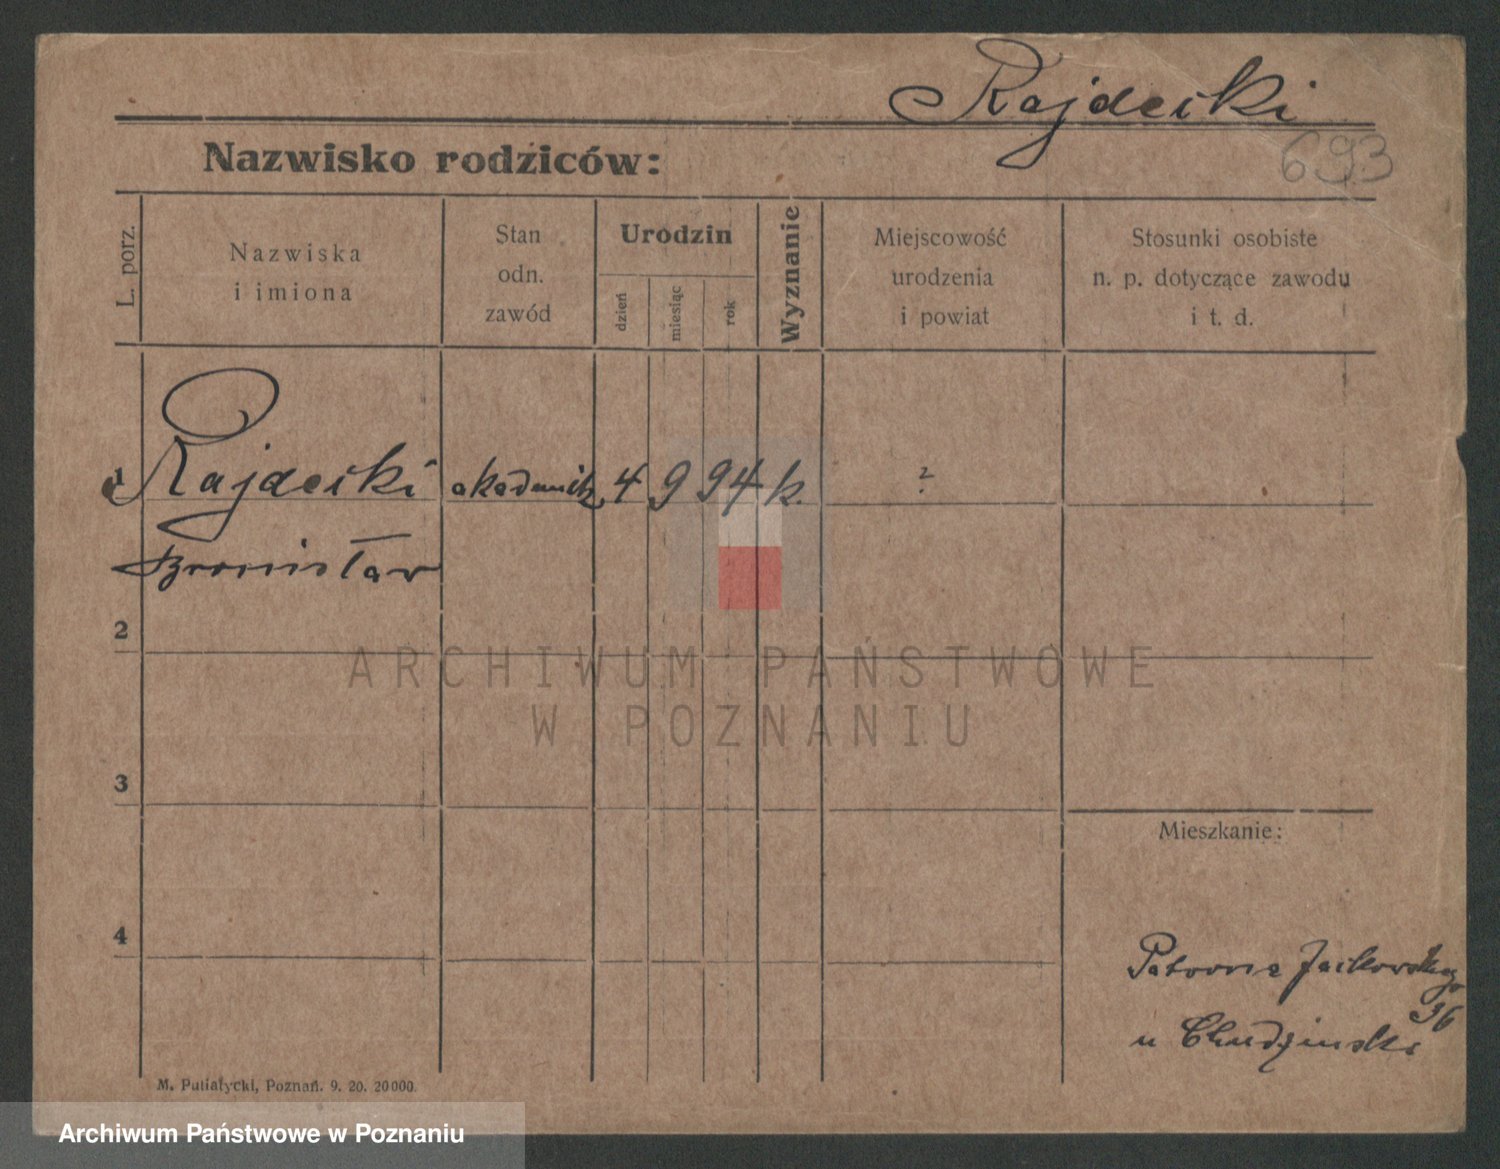 Rajdecki
693
Nazwisko rodziców:
L. porz.
Nazwiska
i imiona
Stan
odn.
zawód
Urodzin
dzień
miesiąc
rok
Wyznanie
Miejscowość
urodzenia
i powiat
Stosunki osobiste
n. p. dotyczące zawodu
i t. d.
1 Rajdecki akademik 4 9 94 k. ?
Bronisław
2
ARCHIWUM PAŃSTWOWE
W POZNANIU
3
Mieszkanie:
4
Patrona Jackowskiego
36
u Chudzinski
M. Putiatycki, Poznań. 9. 20. 20000.
Archiwum Państwowe w Poznaniu